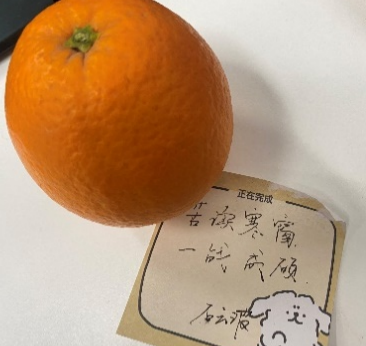 正在完成
苦读寒窗
一战成硕